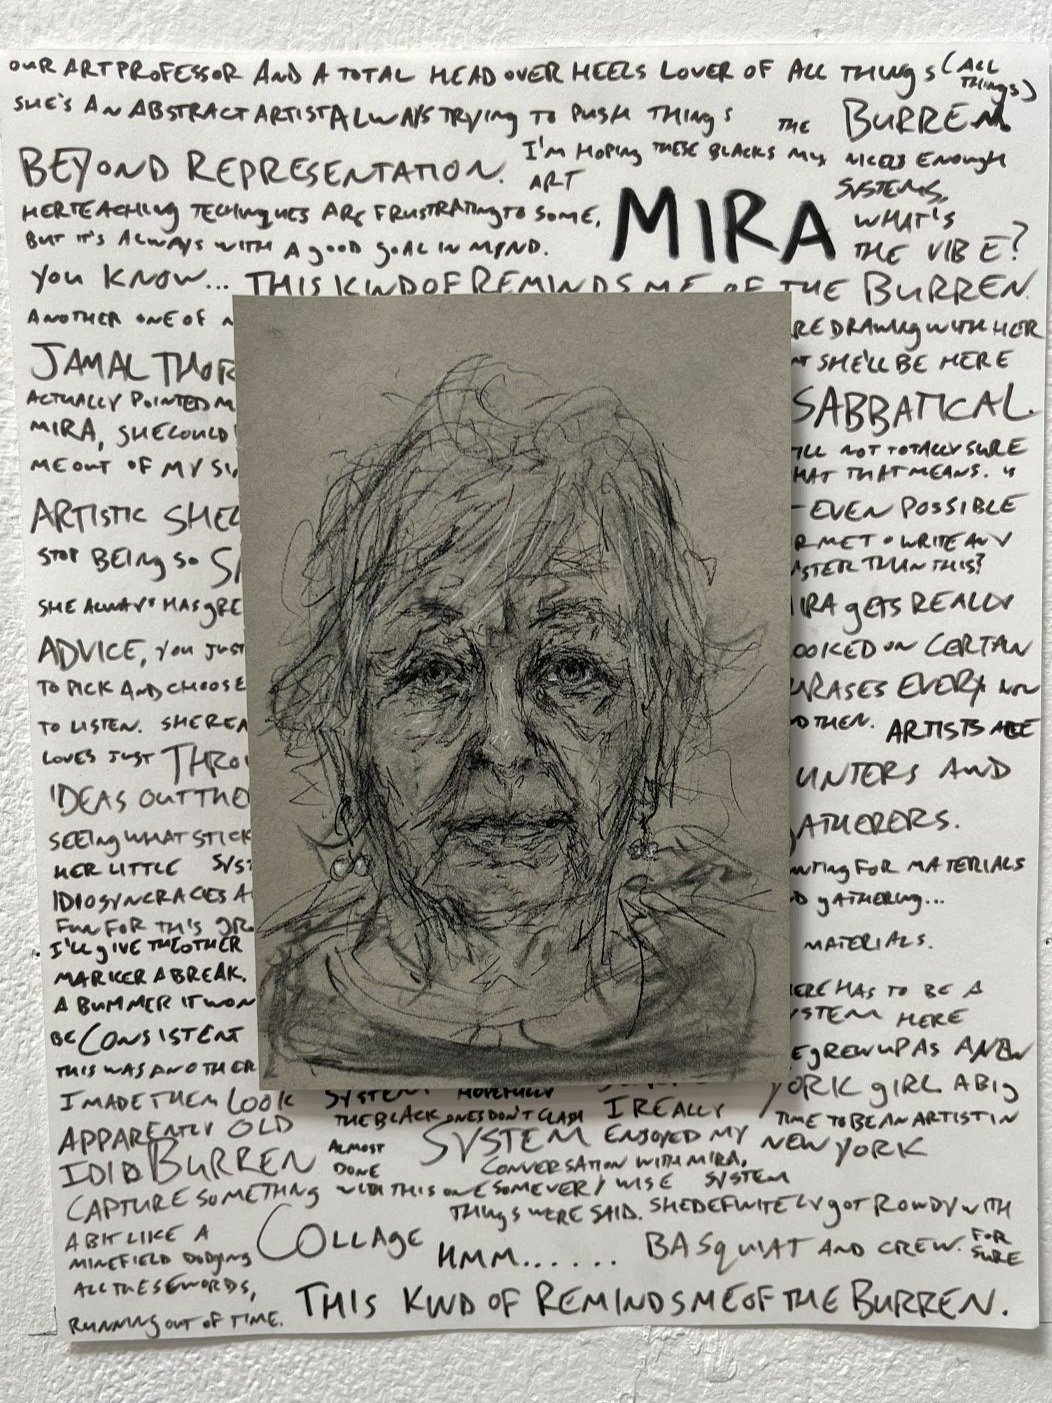 OUR ART PROFESSOR AND A TOTAL HEAD OVER HEELS LOVER OF ALL THINGS (ALL THINGS)
SHE'S AN ABSTRACT ARTIST ALWAYS TRYING TO PUSH THINGS THE BURREN
BEYOND REPRESENTATION. I'M HOPING THESE BLACKS MIX NICELY ENOUGH
ART SYSTEMS,
HER TEACHING TECHINQUES ARE FRUSTRATING TO SOME, MIRA WHAT'S
BUT IT'S ALWAYS WITH A GOOD GOAL IN MIND. THE VIBE?
YOU KNOW... THIS KIND OF REMINDS ME OF THE BURREN.
ANOTHER ONE OF
RE DRAWING WITH HER
JAMAL THOR
SHE'LL BE HERE
ACTUALLY POINTED M
SABBATICAL.
MIRA, SHE COULD
ILL NOT TOTALLY SURE
ME OUT OF MY
HAT THAT MEANS.
ARTISTIC SHEL
EVEN POSSIBLE
STOP BEING SO
R ME TO WRITE ANY
STER THAN THIS?
SHE ALWAYS HAS GRE
IRA GETS REALLY
ADVICE, YOU JUST
OOKED ON CERTAIN
TO PICK AND CHOOSE
HRASES EVERY NOW
TO LISTEN. SHE REA
D THEN. ARTISTS ARE
LOVES JUST THRO
UNTERS AND
IDEAS OUT THO
GATHERERS.
SEEING WHAT STICK
NTING FOR MATERIALS
HER LITTLE SYST
D GATHERING...
IDIOSYNCRACIES A
FUN FOR THIS GRO
I'LL GIVE THE OTHER
MATERIALS.
MARKER A BREAK.
A BUMMER IT WON
ERE HAS TO BE A
BE CONSISTENT
YSTEM HERE
THIS WAS ANOTHER
E GREW UP AS A NEW
I MADE THEM LOOK SYSTEM HOPEFULLY YORK GIRL A BIG
APPARENTLY OLD THE BLACK ONES DON'T CLASH I REALLY TIME TO BE AN ARTIST IN
IDID BURREN ALMOST DONE SYSTEM ENJOYED MY NEW YORK
CONVERSATION WITH MIRA,
CAPTURE SOMETHING WITH THIS ONE SOME VERY WISE SYSTEM
THINGS WERE SAID. SHE DEFINITELY GOT ROWDY WITH
A BIT LIKE A COLLAGE HMM...... BASQUIAT AND CREW. FOR SURE
MINEFIELD DODGING
ALL THESE WORDS,
RUNNING OUT OF TIME. THIS KIND OF REMINDS ME OF THE BURREN.